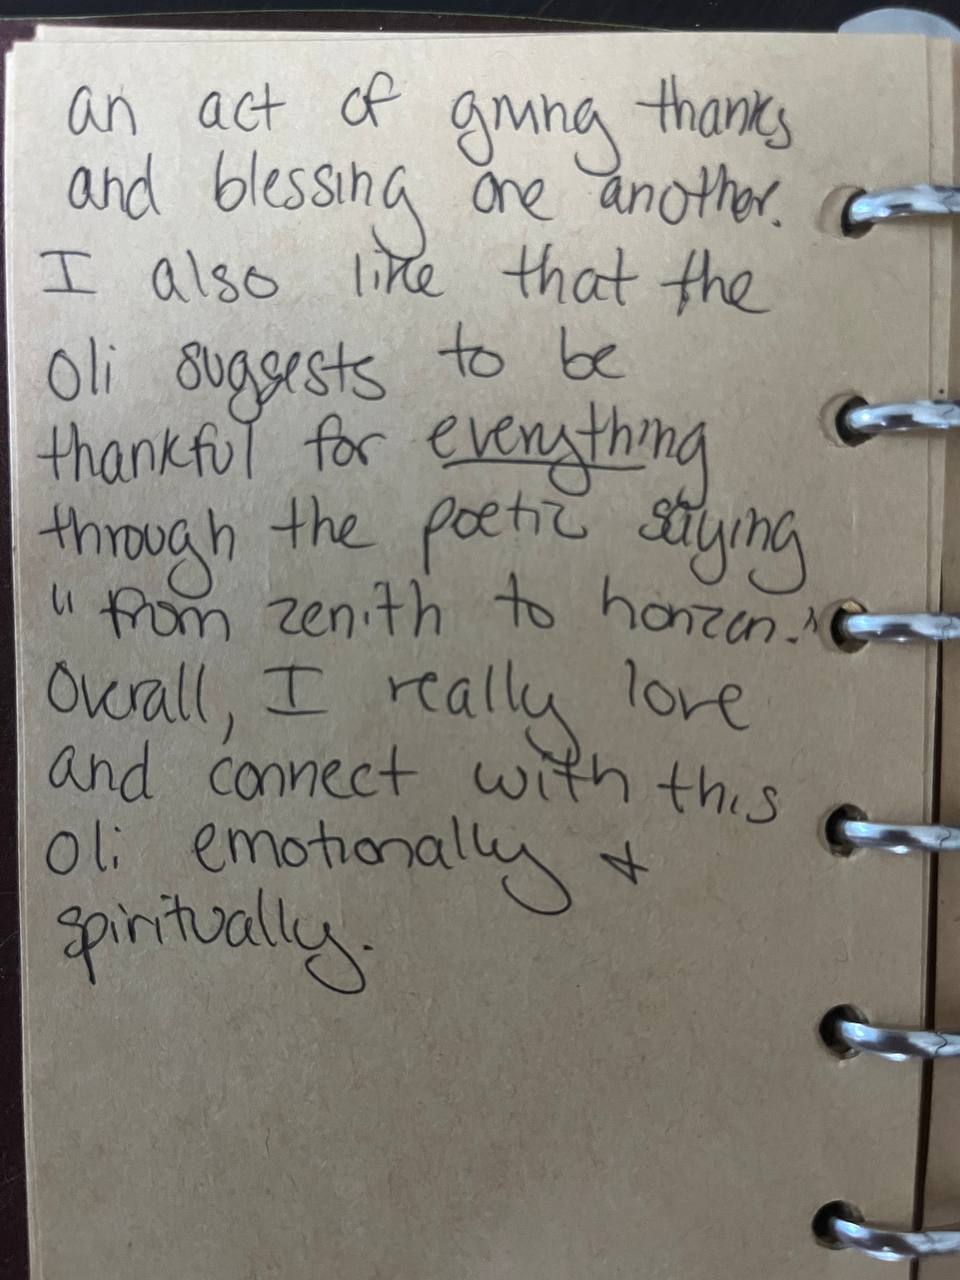 an act of giving thanks
and blessing one another.
I also like that the
Oli suggests to be
thankful for everything
through the poetic saying
"from zenith to horizon."
Overall, I really love
and connect with this
Oli emotionally &
spiritually.